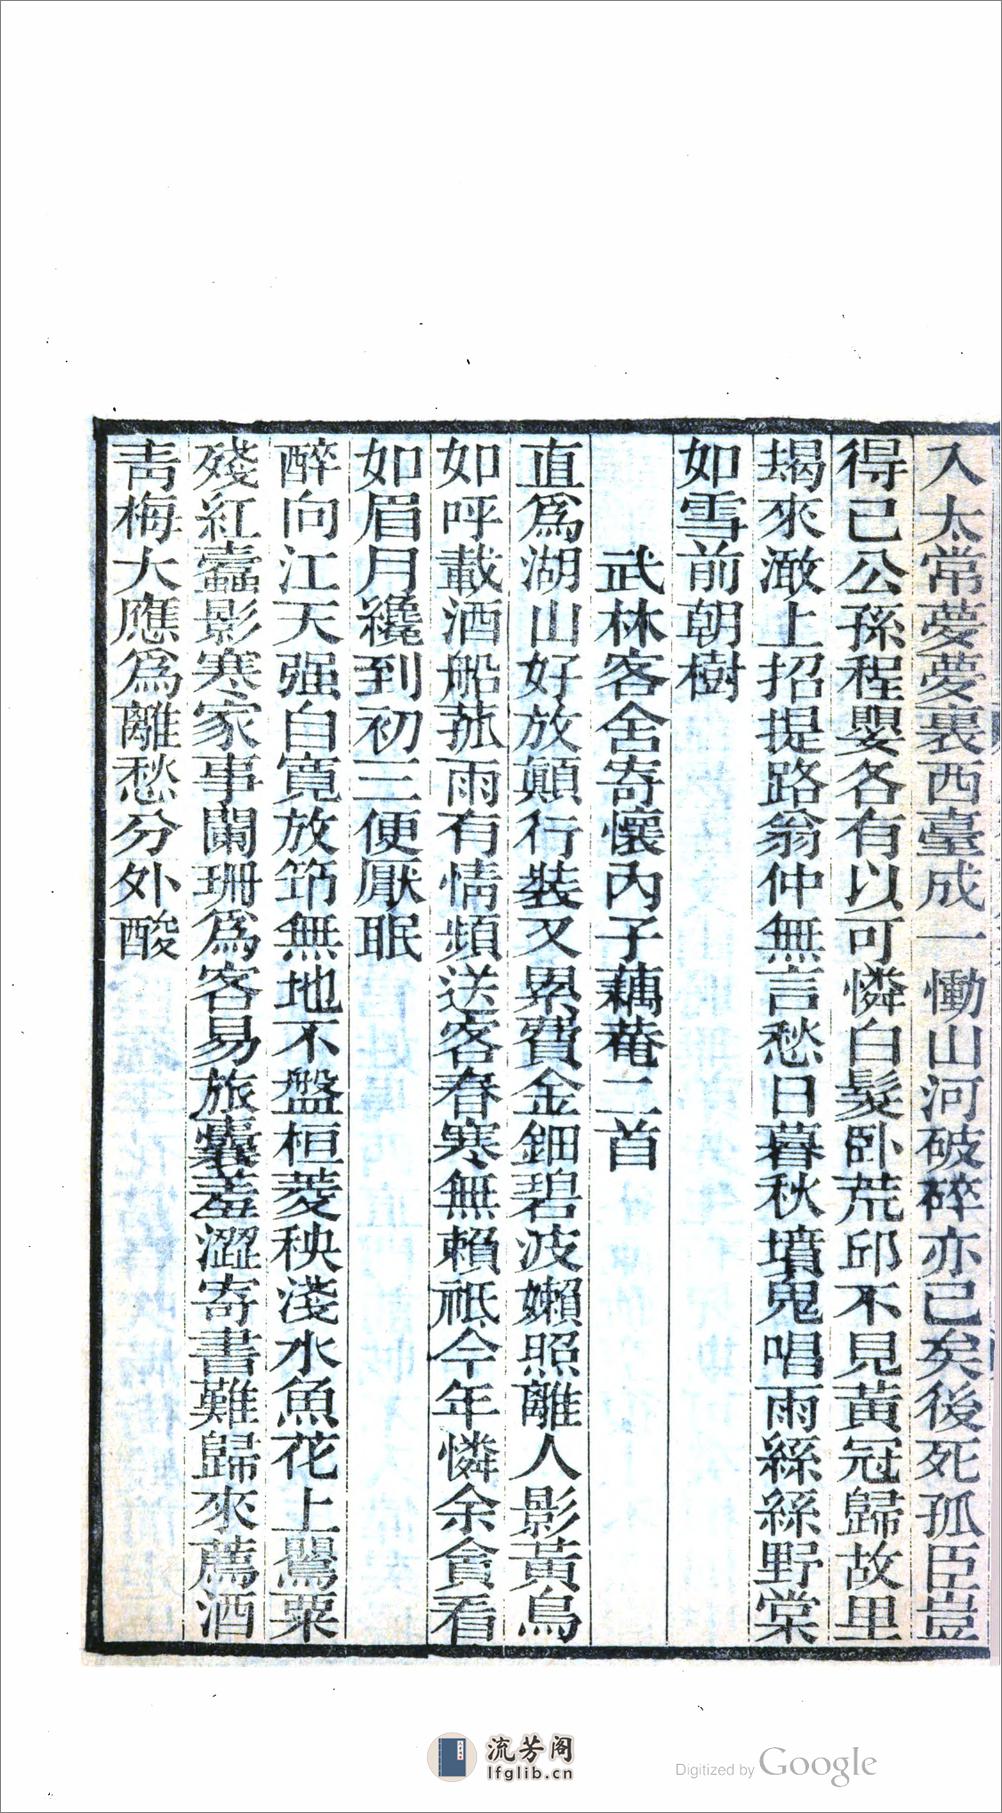 入太常夢夢裏西臺成一慟山河破碎亦已矣後死孤臣豈
得已公孫程嬰各有以可憐白髮卧荒邱不見黃冠歸故里
朅來澉上招提路翁仲無言愁日暮秋墳鬼唱雨絲絲野棠
如雪前朝樹
武林客舍寄懷內子藕菴二首
直爲湖山好放顛行裝又累費金鈿碧波嬾照離人影黃鳥
如呼載酒船菰雨有情頻送客春寒無賴祗今年憐余貪看
如眉月纔到初三便厭眠
醉向江天强自寬放笻無地不盤桓菱秧淺水魚花上鸎粟
殘紅蠹影寒家事闌珊爲客易旅囊羞澀寄書難歸來薦酒
靑梅大應爲離愁分外酸
流芳阁
lfglib.cn
Digitized by Google